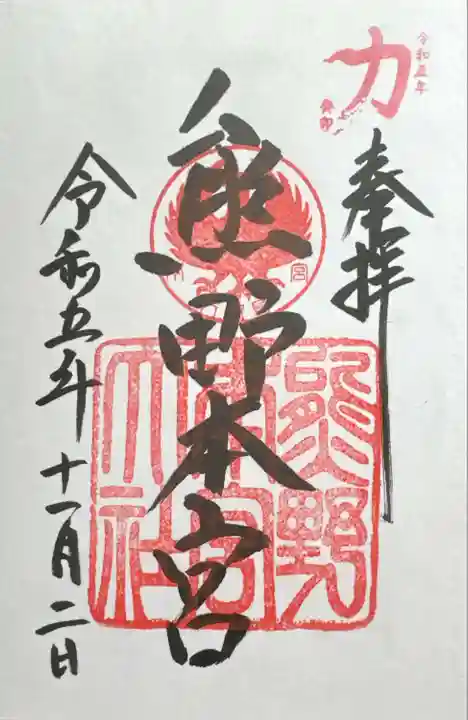 力
令和五年
癸卯
奉拝
熊野本宮
熊野
本宮
大社
宮
令和五年十一月二日